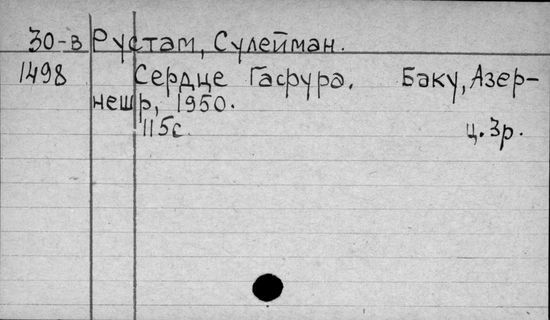 30-в Рустам, Сулейман.
1498 Сердце Гафура. Баку, Азер-
нешр, 1950.
115с. ц. 3р.